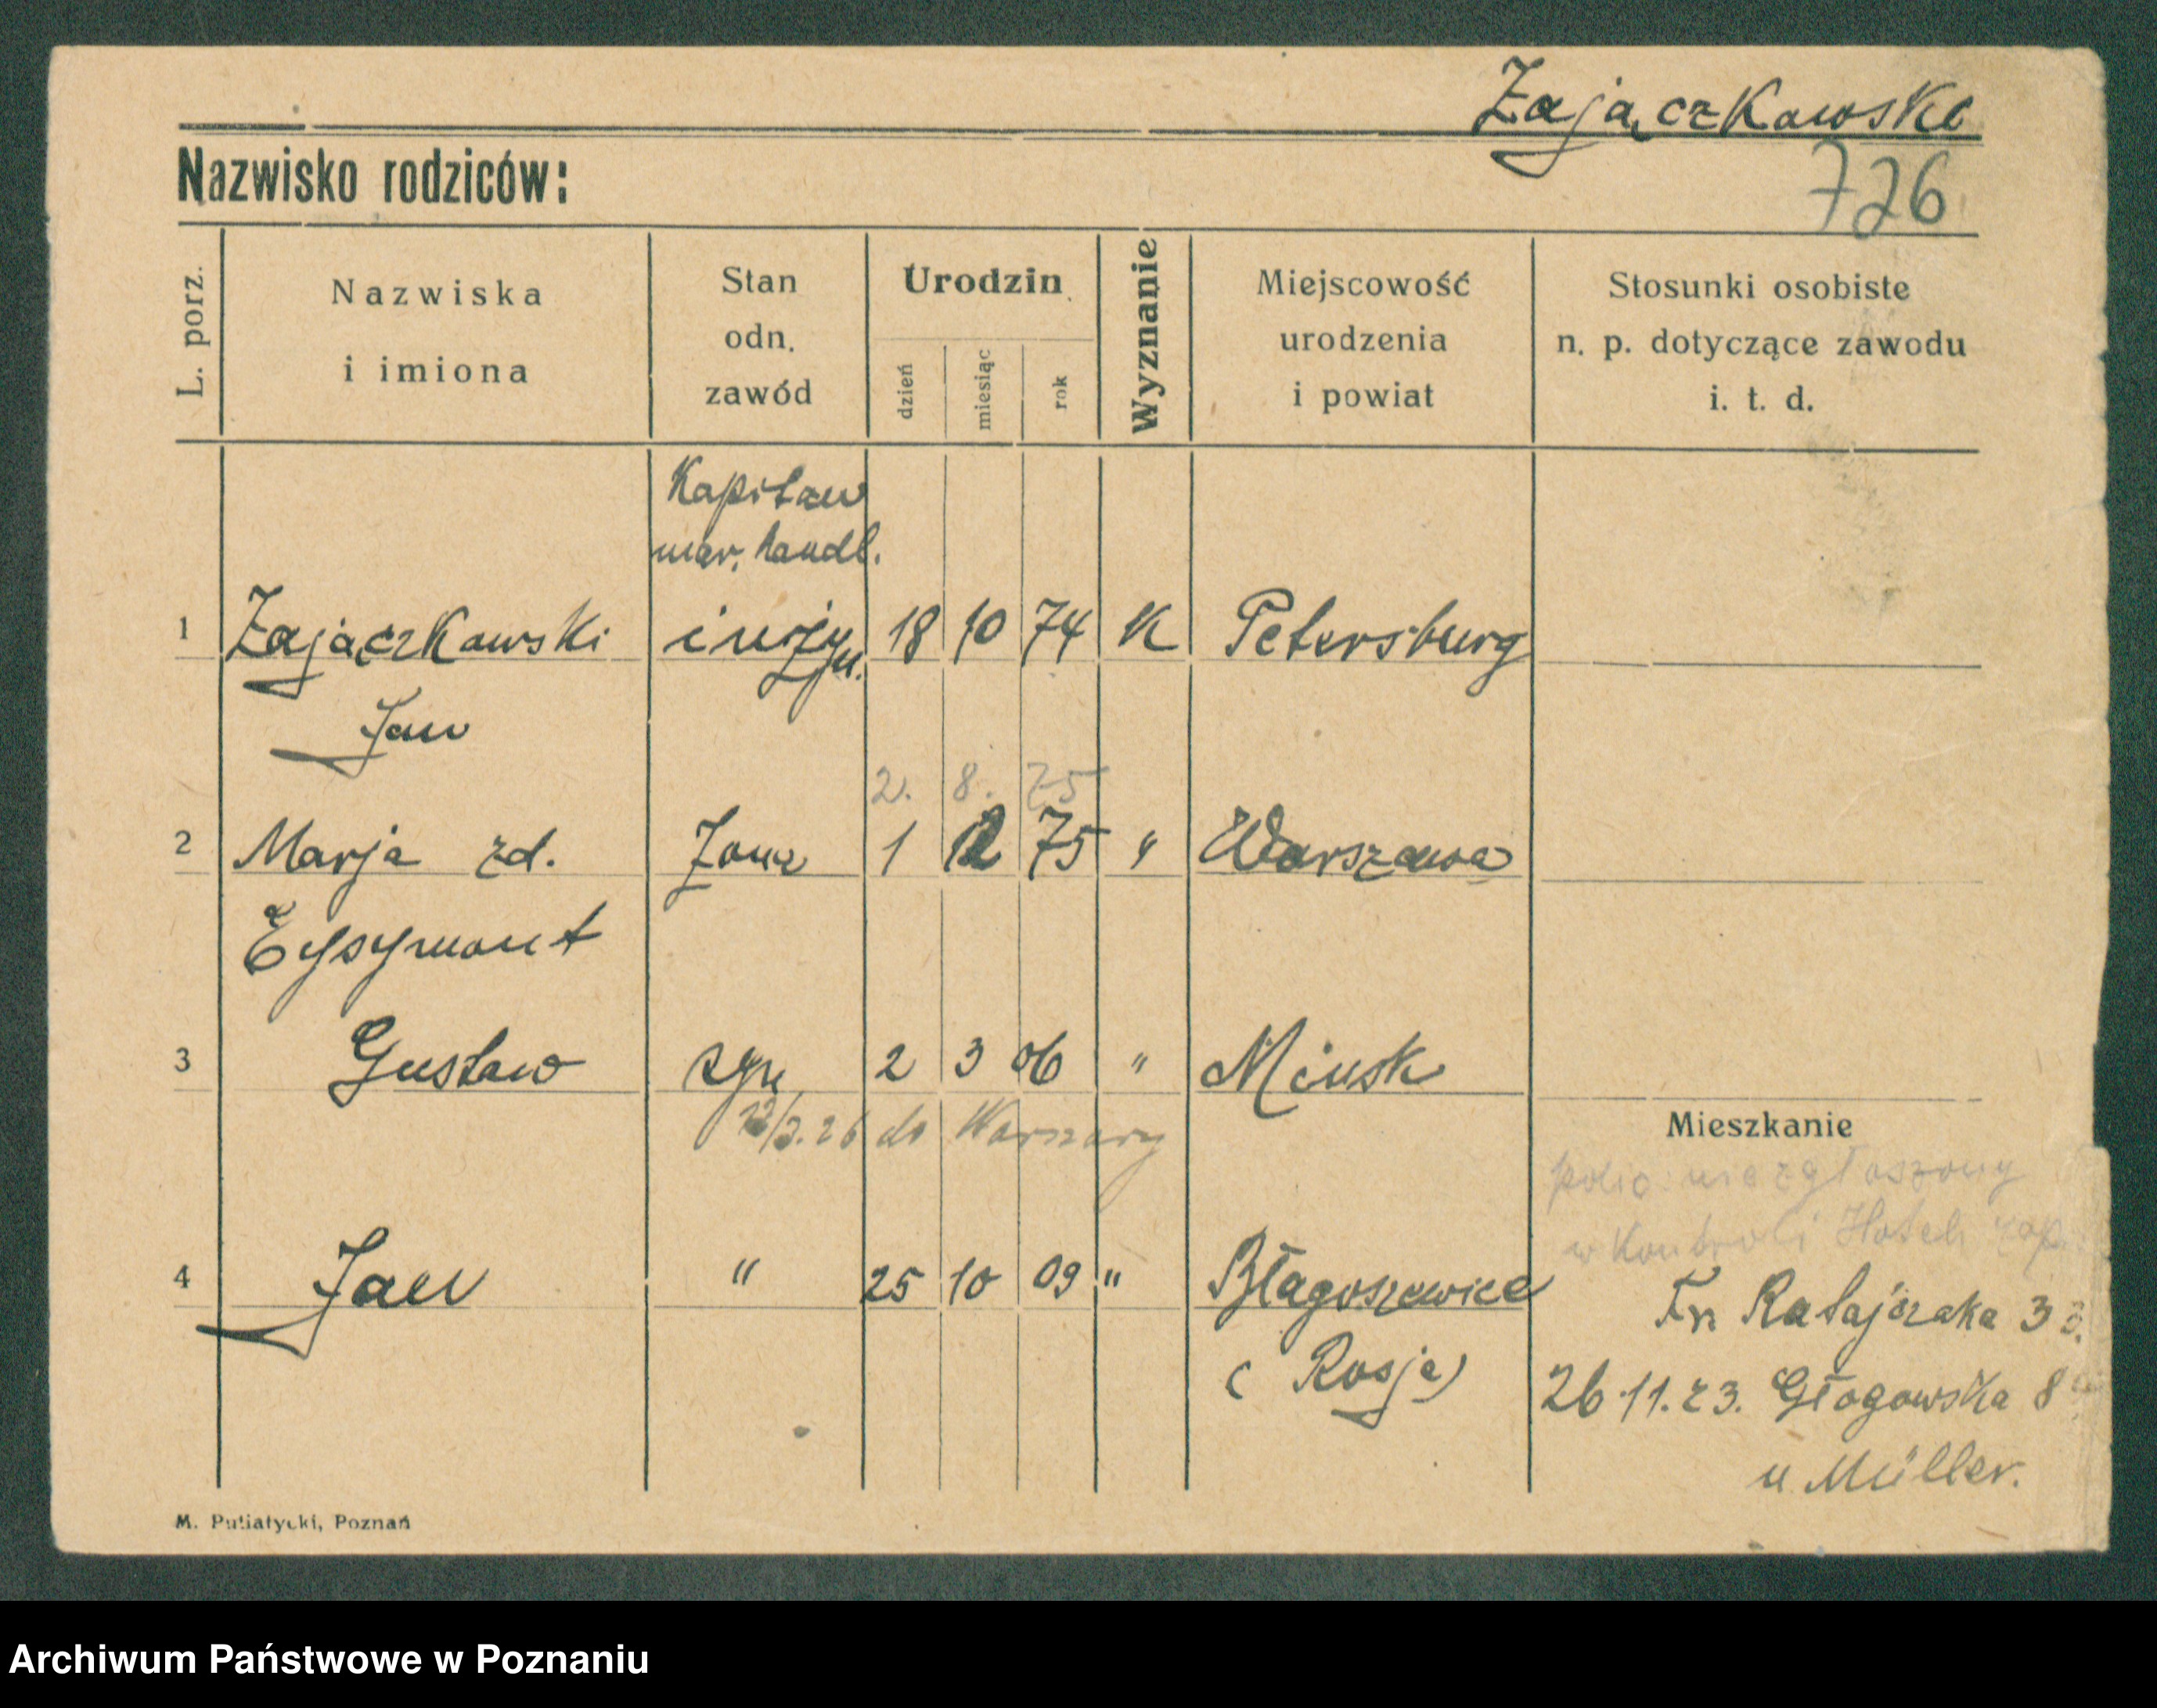 Zajączkowski
726
Nazwisko rodziców:
L. porz.
Nazwiska
i imiona
Stan
odn.
zawód
Urodzin
dzień
miesiąc
rok
Wyznanie
Miejscowość
urodzenia
i powiat
Stosunki osobiste
n. p. dotyczące zawodu
i. t. d.
Kapitan
mar. handl.
1 Zajączkowski inżyn. 18 10 74 K Petersburg
Jan
2. 8. 75
2 Marja zd. żona 1 12 75 " Warszawa
Eysymont
3 Gustaw syn 2 3 06 " Minsk
12/3.26 do Warszawy
Mieszkanie
polic. niezgłoszony
w Kontroli Hoteli zap.
4 Jan " 25 10 09 " Błagoszewice
(Rosja)
Fr. Ratajczaka 33.
26.11.23. Głogowska 8
u Müller.
M. Putiatycki, Poznań
Archiwum Państwowe w Poznaniu